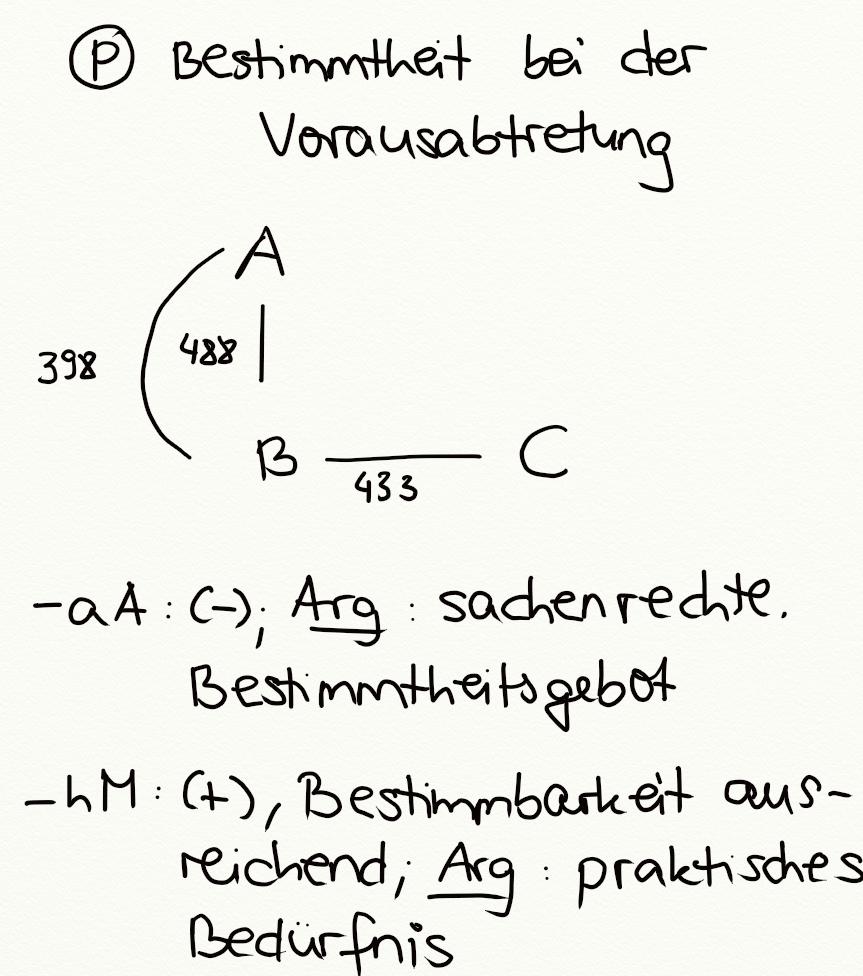 Ⓟ Bestimmtheit bei der
Vorausabtretung
A
398
488
B C
433
- aA : (-); Arg : sachenrechte.
Bestimmtheitsgebot
- hM : (+), Bestimmbarkeit aus-
reichend; Arg : praktisches
Bedürfnis